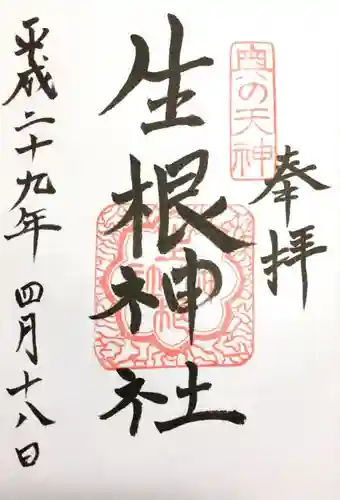 奥の天神
奉拝
生根神社
平成二十九年 四月十八日